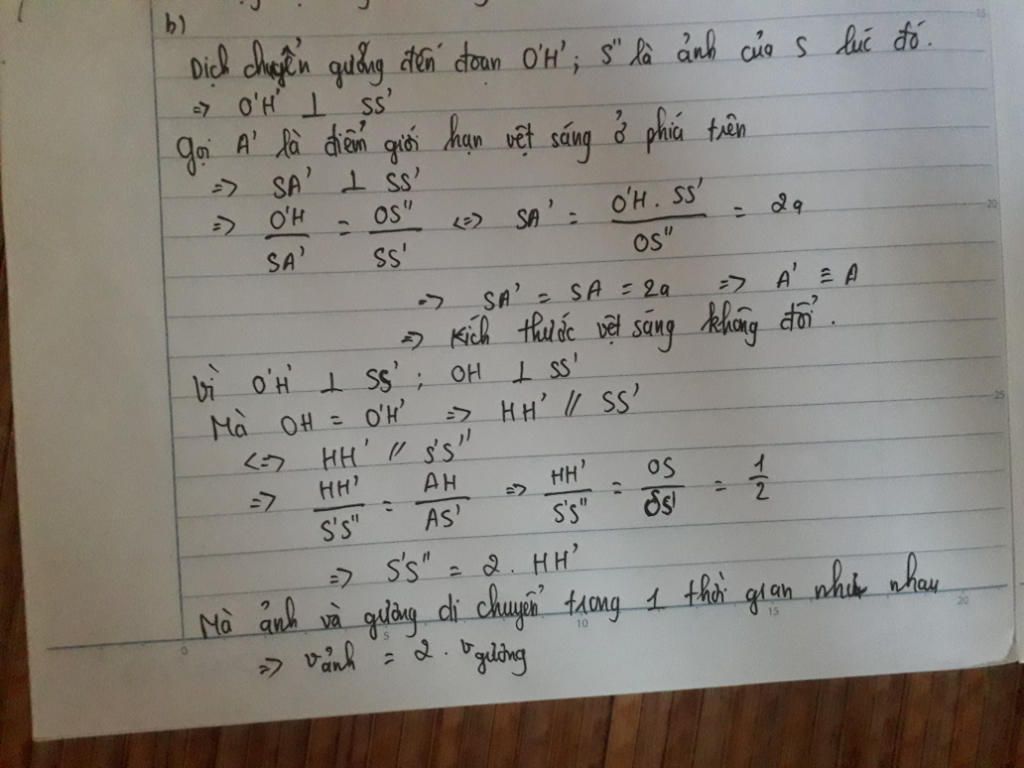 b)
Dịch chuyển gương đến đoạn O'H'; S" là ảnh của S lúc đó.
=> O'H' ⊥ SS'
Gọi A' là điểm giới hạn vệt sáng ở phía trên
=> SA' ⊥ SS'
=> O'H / SA' = OS" / SS' <=> SA' = O'H . SS' / OS" = 2a
=> SA' = SA = 2a => A' ≡ A
=> Kích thước vệt sáng không đổi.
Vì O'H' ⊥ SS' ; OH ⊥ SS'
Mà OH = O'H' => HH' // SS'
<=> HH' // S'S"
=> HH' / S'S" = AH / AS' => HH' / S'S" = OS / SS' = 1 / 2
=> S'S" = 2 . HH'
Mà ảnh và gương di chuyển trong 1 thời gian như nhau
=> v ảnh = 2 . v gương